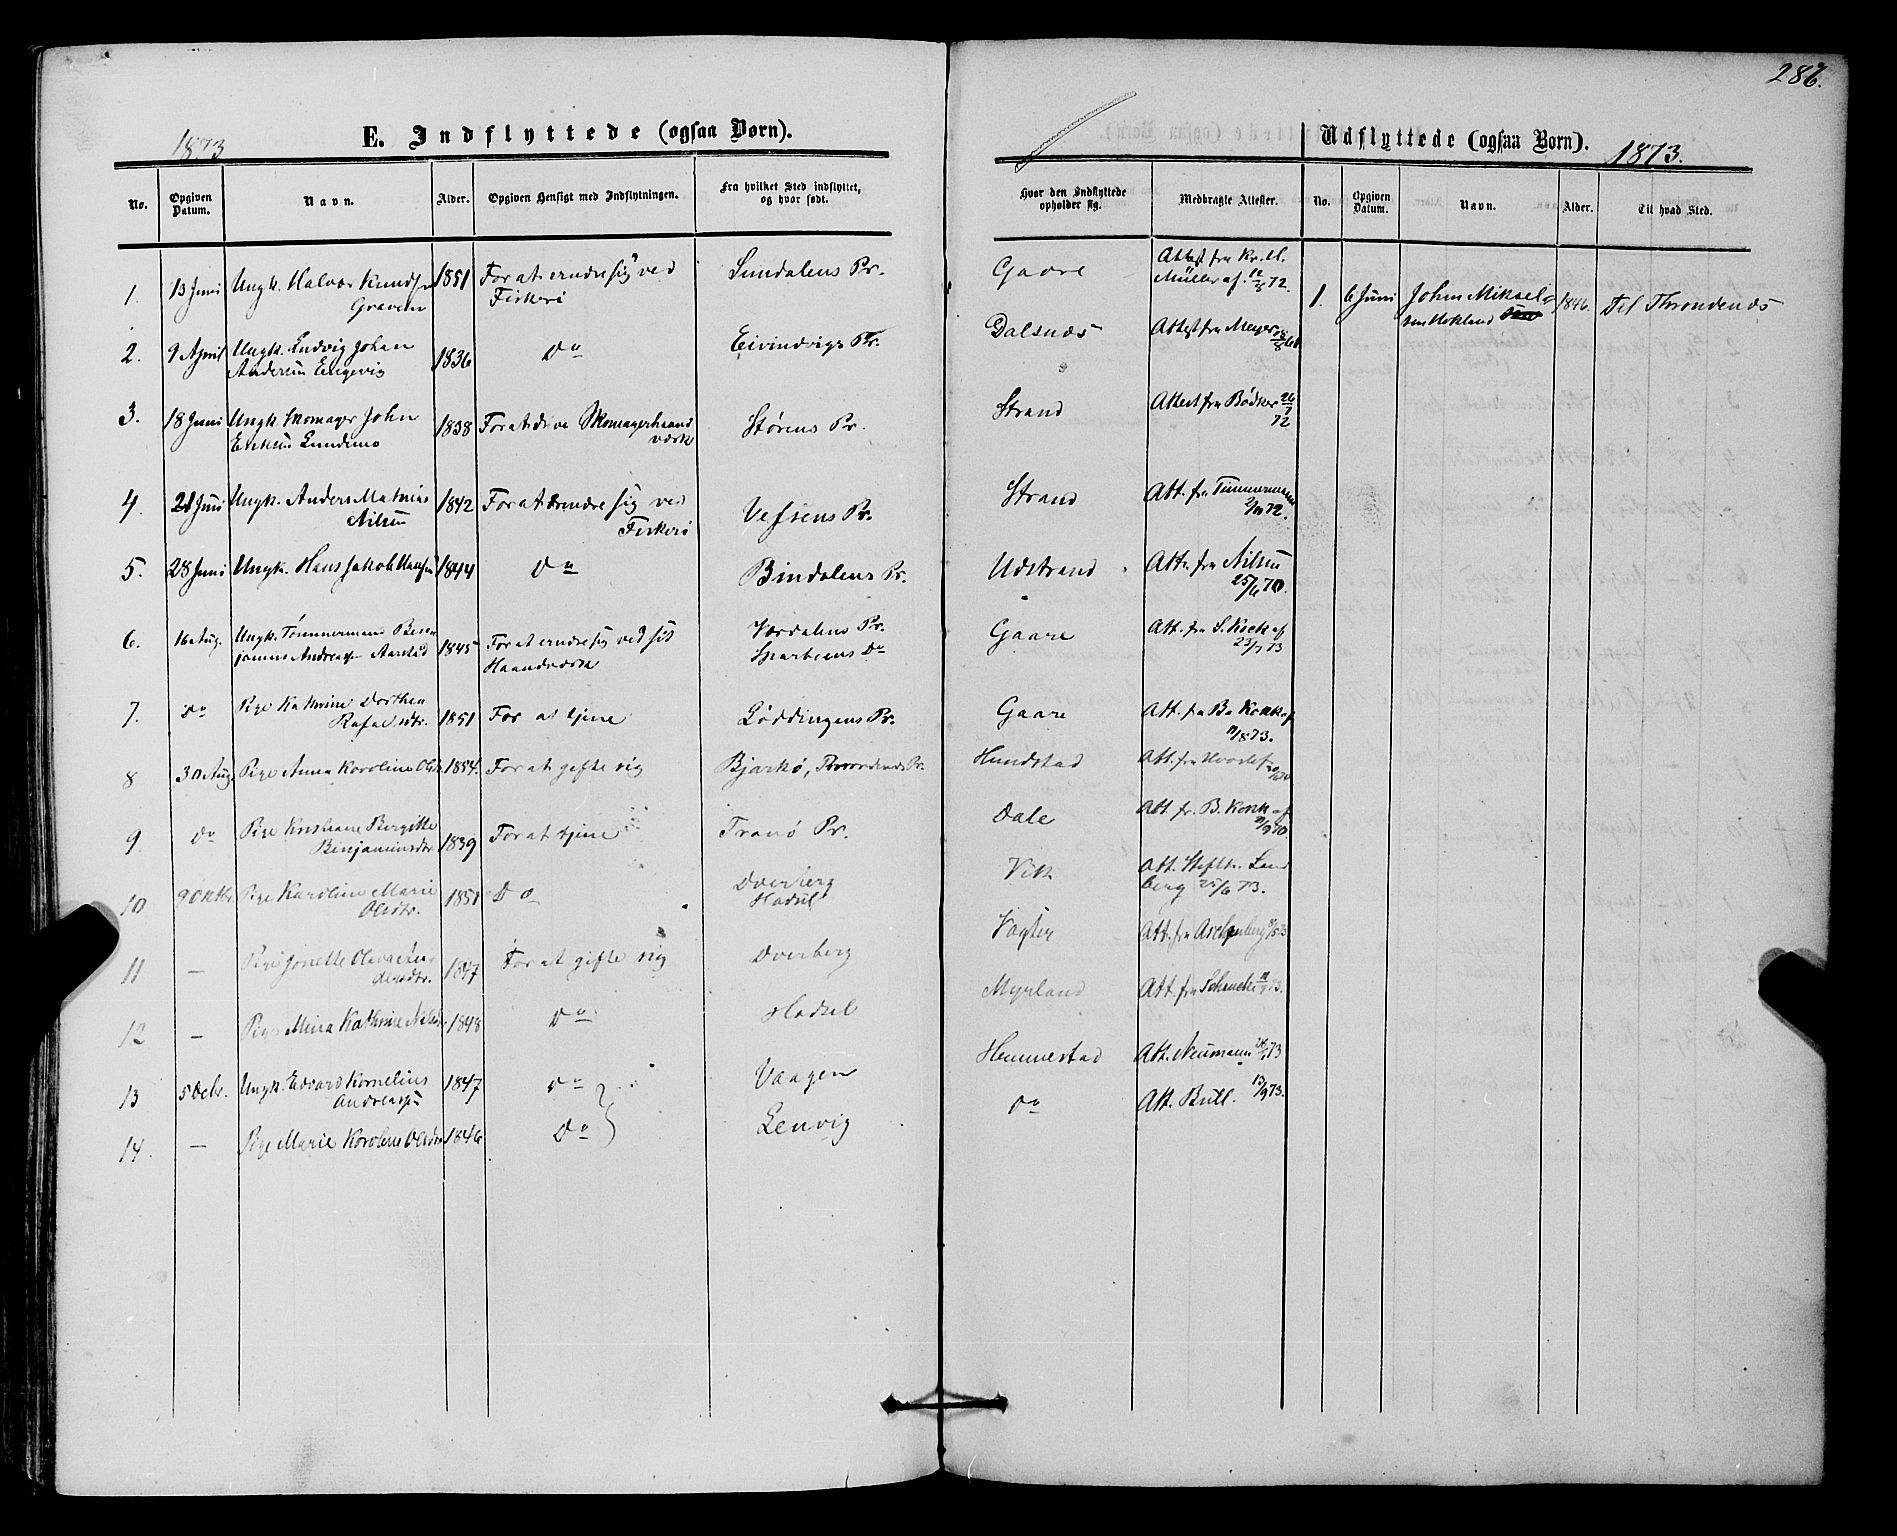 286.
1873
E. Indflyttede (ogsaa Børn).
No.
Opgiven Datum.
Navn.
Alder.
Opgiven Hensigt med Indflytningen.
Fra hvilket Sted indflyttet, og hvor født.
1. 13 Juni Ungk. Halvor Knudsen 1851 For at ernære sig ved Sundalens Pr.
Graven Fiskeri
2. 9 April Ungk. Ludvig Johan 1836 Do Eivindvigs Pr.
Andersen Engevig
3. 18 Juni Ungk. Skomager John 1838 For at drive Skomagerhaand Størens Pr.
Eriksen Lundemo værk
4. 21 Juni Ungk. Anders Mathias 1842 For at ernære sig ved Vefsens Pr.
Nilsen Fiskeri
5. 28 Juni Ungk. Hans Jakob Hansen 1844 Do Bindalens Pr.
6. 16 Aug. Ungk. Tømmermand Ben 1845 For at ernære sig ved sit Værdalens Pr.
jamin Andreas Aarstad Haandværk Sparbuens Do
7. Do Pige Kathrine Dorthea 1851 For at tjene Løddingens Pr.
Rafaelsdtr.
8 30 Aug. Pige Anna Karoline Olsdtr 1854. For at gifte sig Bjarkø, Throndenæs Pr.
9. Do Pige Kristiane Birgitte 1839 For at tjene Tranø Pr.
Benjaminsdtr.
10 9 Oktbr. Pige Karoline Marie 1851 Do Dverberg
Olsdtr. Hadsel
11 — Pige Jonette Olava An 1847 For at gifte sig Dverberg
dersdtr.
12 — Pige Mina Kathrine Nilsdtr 1848 Do Hadsel
13 5 Dcbr. Ungk. Edvard Kornelius 1847 Do Vaagen
Andreassen
14. — Pige Marie Karoline Olsdtr 1846 Do Lenvig
Hvor den Indflyttede opholder sig.
Medbragte Attester.
Gaare Attest fra Kr. H.
Müller af 12/8 72.
Dalsnæs Attest fra Meyer
Strand Attest fra Bødker 26/7 72
Strand Att. fra Timmermann 2/10 72.
Udstrand Att. fra Nilsen 25/6 70.
Gaare Att. fra S. Koch af 23/7 73
Gaare Att. fra B. Kokk af 11/8 73.
Hundstad Att. fra
Dale Att. fr. B. Kokk af
Vik Att. Stiftk. Land
berg 25/6 73.
Vagten Att. fra
Myrland Att. fra Schancke
Hemmestad Att. Neumann
Do Att. Bull. 13/9 73.
Udflyttede (ogsaa Børn). 1873.
No.
Opgiven Datum.
Navn.
Alder.
Til hvad Sted.
1. 6 Juni Johan Mikael 1846. Til Throndenæs
sen Hokland